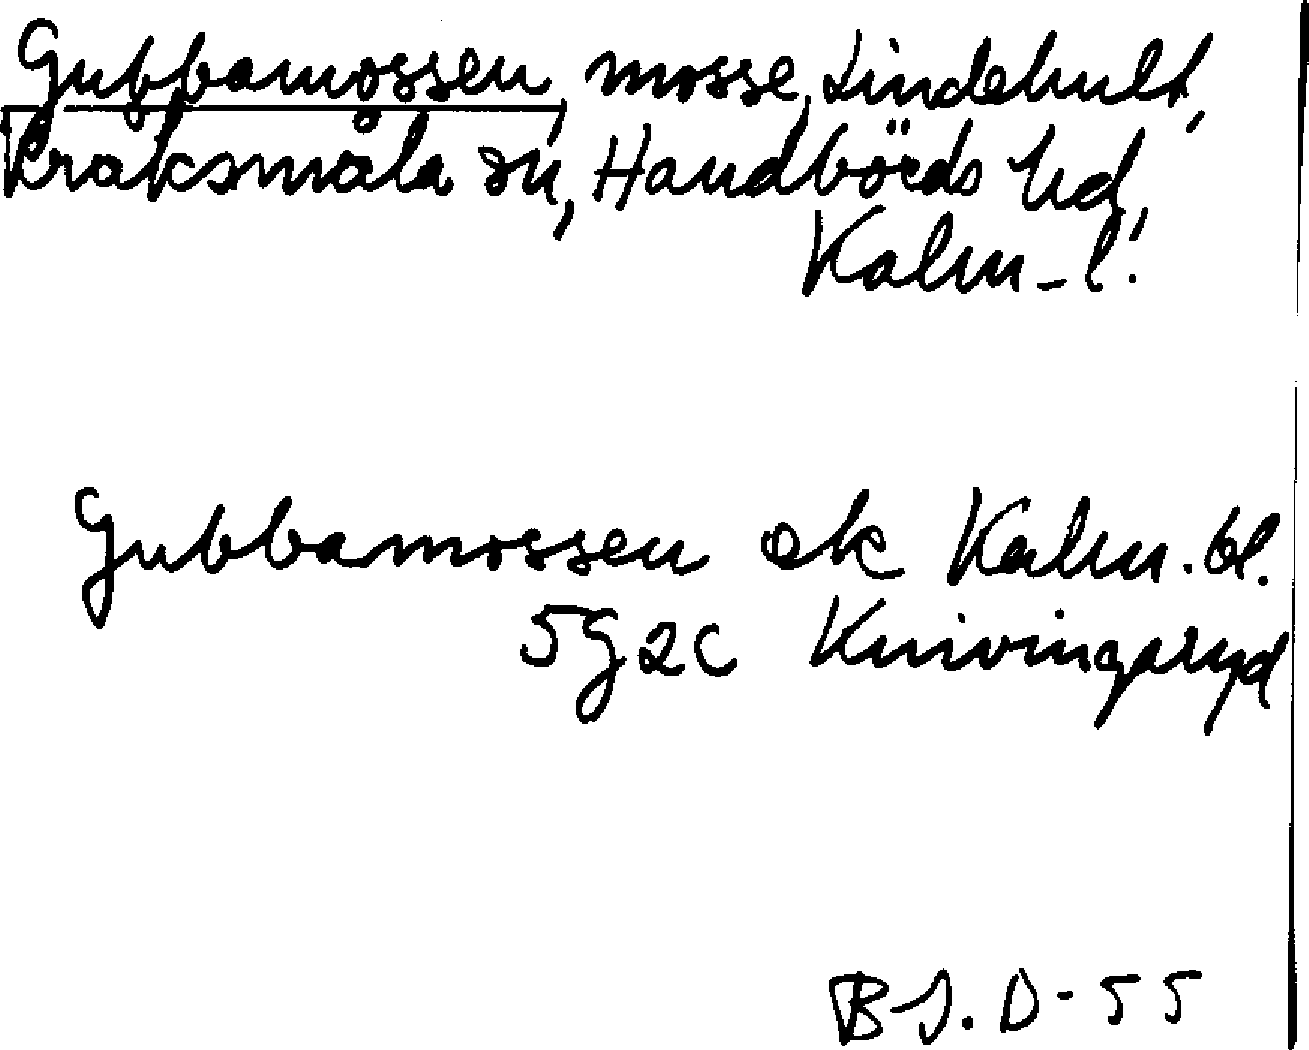 Gubbamossen, mosse, Lindehult,
Kråksmåla sn, Handbörds hd,
Kalm-l.
Gubbamossen ek Kalm. bl.
5g2c Knivingaryd
B-J. D-55